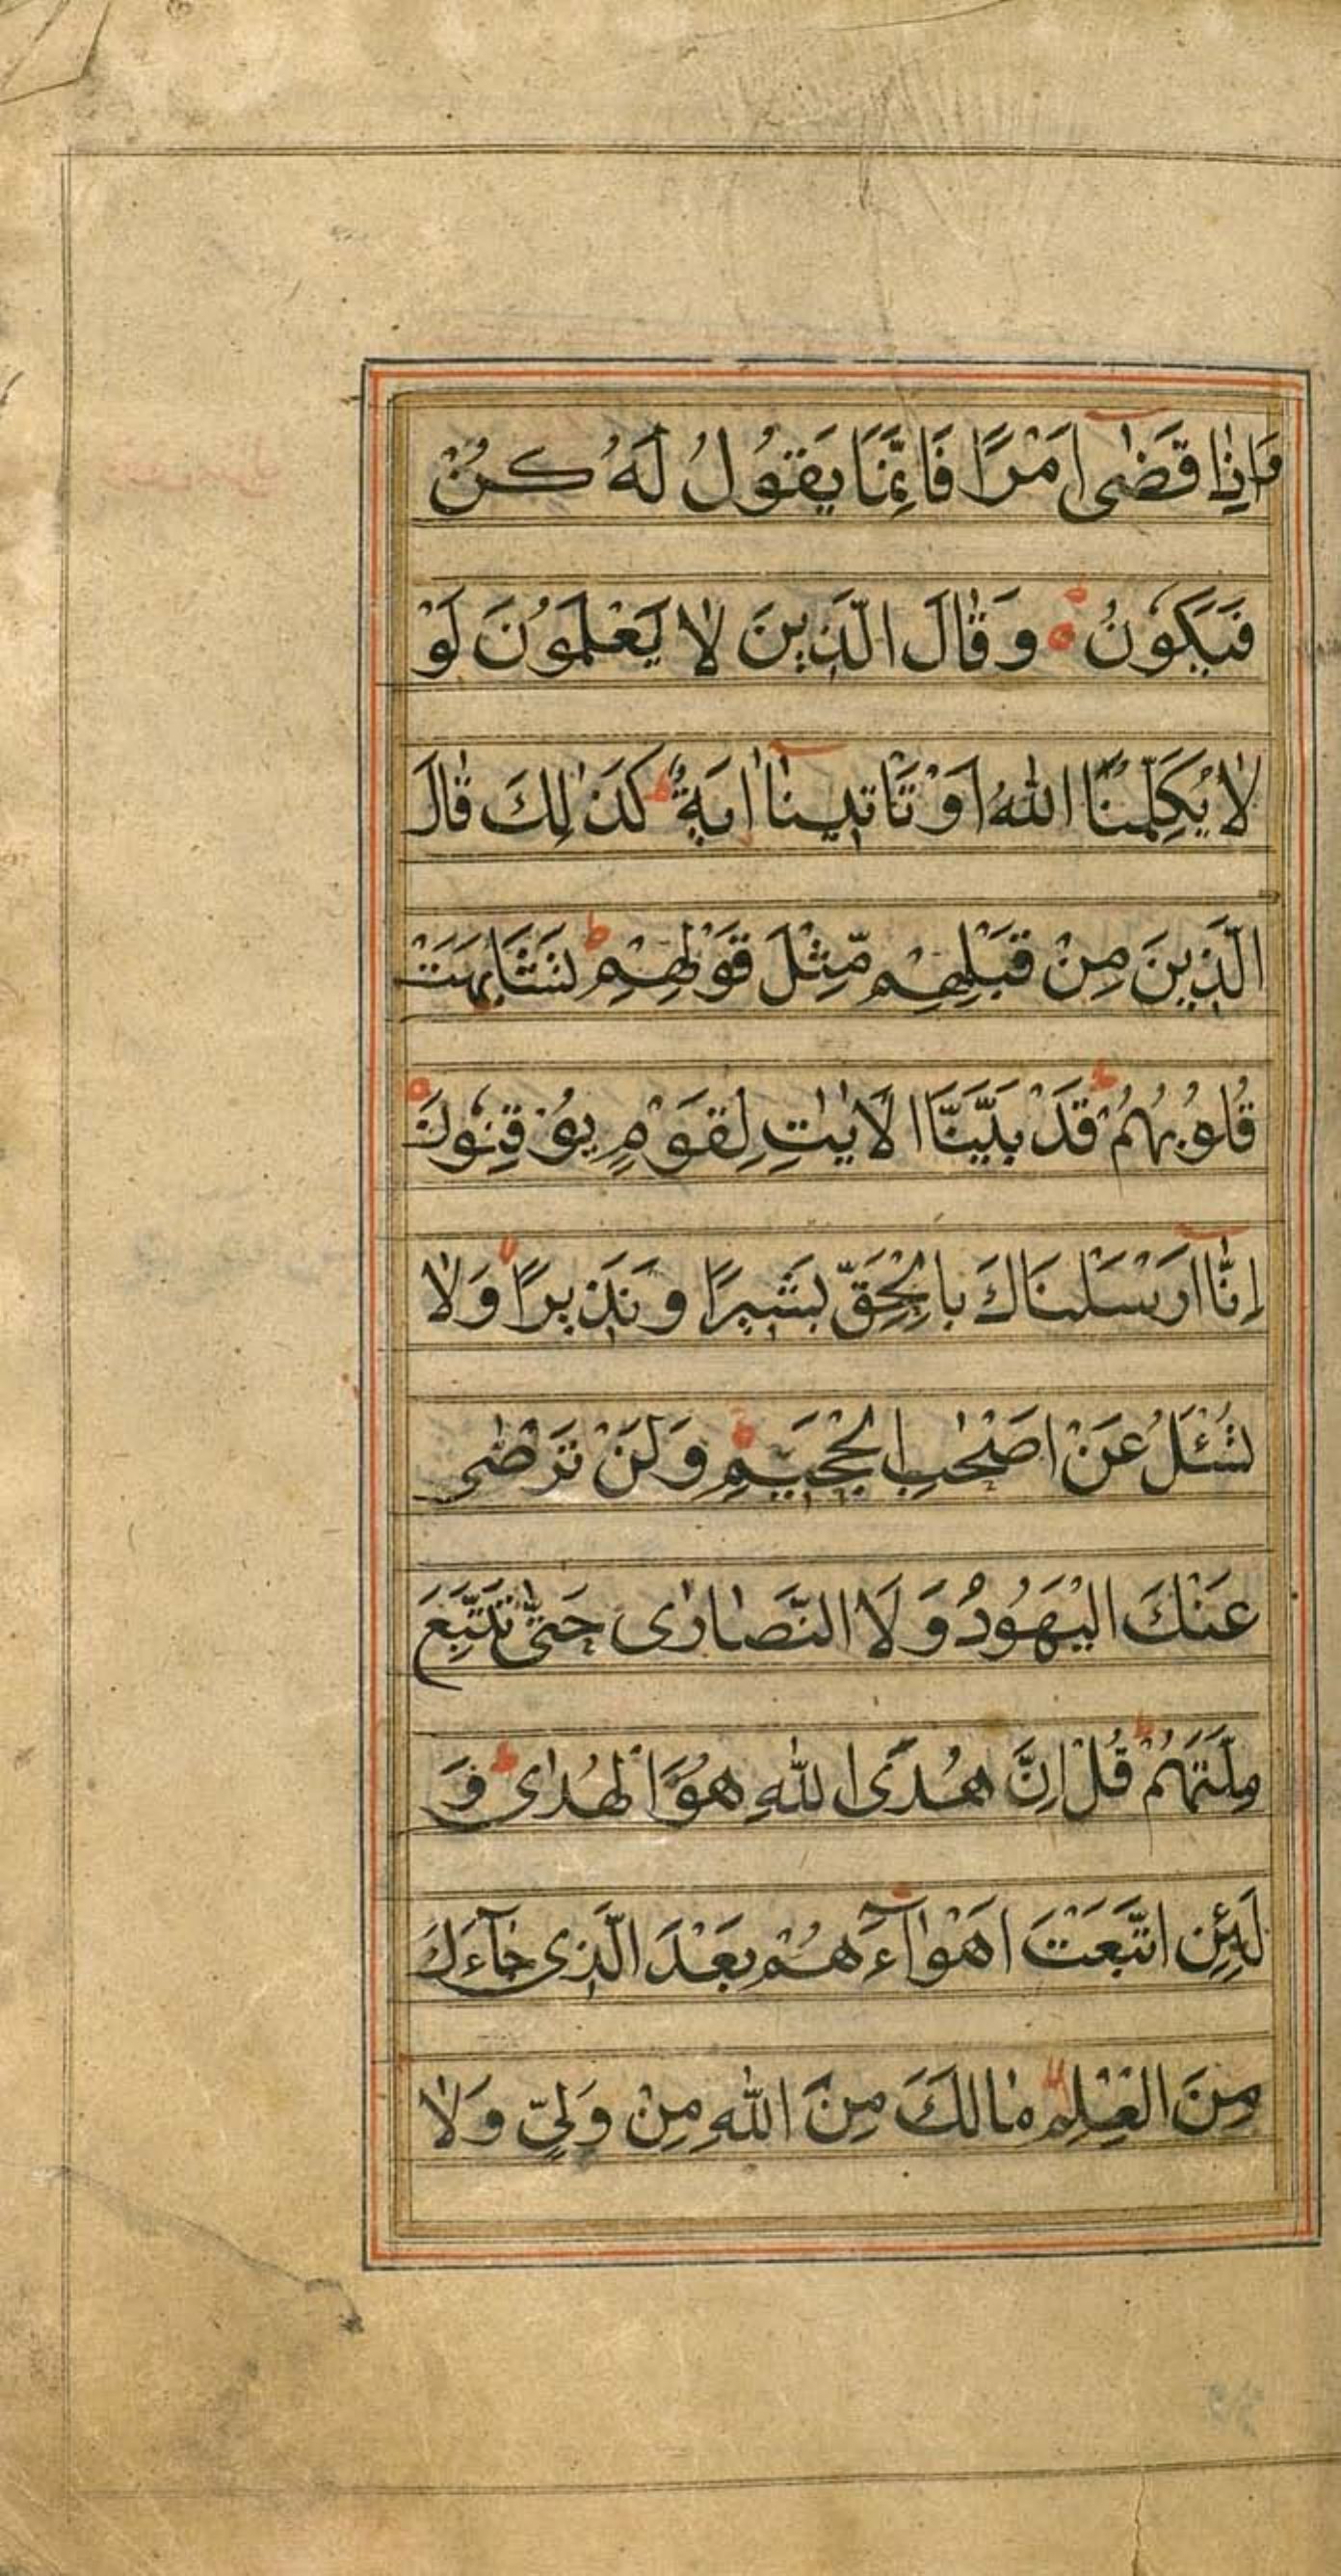 وَاِذَا قَضٰٓى اَمْرًا فَاِنَّمَا يَقُوْلُ لَهُ كُنْ
فَيَكُوْنُ وَقَالَ الَّذِيْنَ لَا يَعْلَمُوْنَ لَوْ
لَا يُكَلِّمُنَا اللّٰهُ اَوْ تَاْتِيْنَآ اٰيَةٌ ط كَذٰلِكَ قَالَ
الَّذِيْنَ مِنْ قَبْلِهِمْ مِّثْلَ قَوْلِهِمْ ط تَشَابَهَتْ
قُلُوْبُهُمْ ط قَدْ بَيَّنَّا الْاٰيٰتِ لِقَوْمٍ يُوْقِنُوْنَ
اِنَّآ اَرْسَلْنَاكَ بِالْحَقِّ بَشِيْرًا وَنَذِيْرًا وَلَا
تُسْئَلُ عَنْ اَصْحٰبِ الْجَحِيْمِ وَلَنْ تَرْضٰى
عَنْكَ الْيَهُوْدُ وَلَا النَّصَارٰى حَتّٰى تَتَّبِعَ
مِلَّتَهُمْ ط قُلْ اِنَّ هُدَى اللّٰهِ هُوَ الْهُدٰى ط وَ
لَئِنِ اتَّبَعْتَ اَهْوَآءَهُمْ بَعْدَ الَّذِى جَآءَكَ
مِنَ الْعِلْمِ مَا لَكَ مِنَ اللّٰهِ مِنْ وَلِىٍّ وَلَا